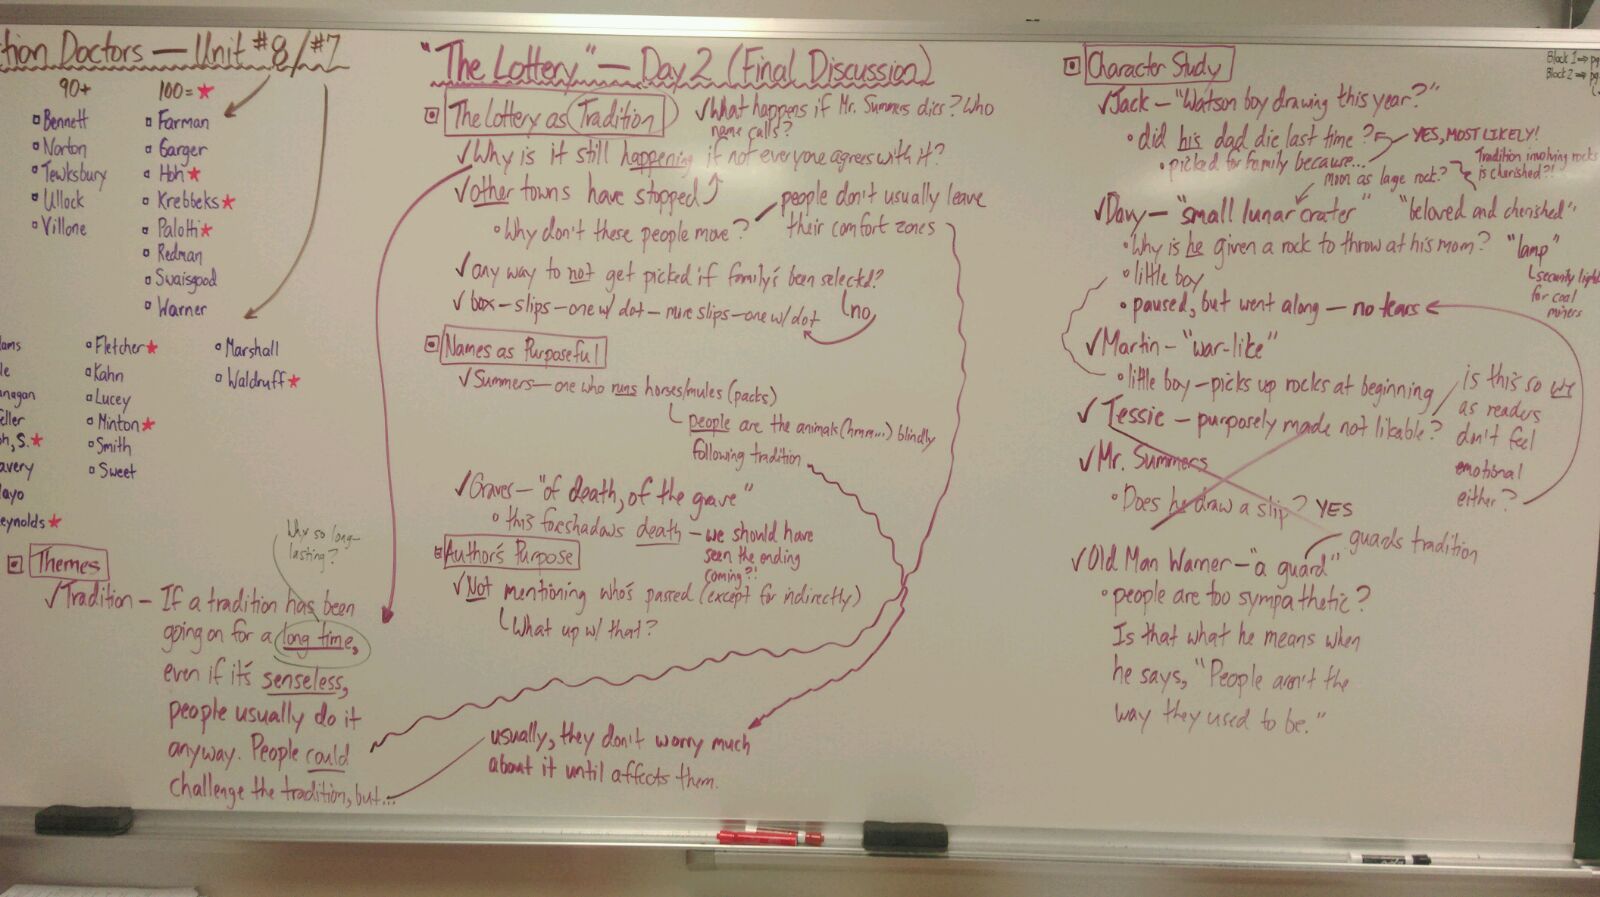 tion Doctors — Unit #8/#7
90+
Bennett
Norton
Tewksbury
Ullock
Villone
100=★
Farman
Garger
Hoh★
Krebbeks★
Palotti★
Redman
Swaisgood
Warner
ams
le
nagan
eller
oh, S.★
avery
ayo
eynolds★
Fletcher★
Kahn
Lucey
Minton★
Smith
Sweet
Marshall
Waldruff★
Themes
Why so long-
lasting?
✓Tradition — If a tradition has been
going on for a long time,
even if it's senseless,
people usually do it
anyway. People could
challenge the tradition, but...
usually, they don't worry much
about it until affects them.
"The Lottery" — Day 2 (Final Discussion)
The Lottery as Tradition
✓What happens if Mr. Summers dies? Who
name calls?
✓Why is it still happening if not everyone agrees with it?
✓other towns have stopped
•Why don't these people move?
people don't usually leave
their comfort zones
✓any way to not get picked if family's been selected?
no
✓box – slips – one w/ dot – more slips – one w/ dot
Names as Purposeful
✓Summers — one who runs horses/mules (packs)
people are the animals (hmm...) blindly
following tradition
✓Graves — "of death, of the grave"
•this foreshadows death — we should have
seen the ending
coming?!
Author's Purpose
✓Not mentioning who's passed (except for indirectly)
What up w/ that?
Character Study
Block 1 ⇒ pg
Block 2 ⇒ pg
✓Jack — "Watson boy drawing this year?"
•did his dad die last time? YES, MOST LIKELY!
•picked for family because...
moon as large rock?
Tradition involving rocks
is cherished?!
✓Davy — "small lunar crater" "beloved and cherished"
•Why is he given a rock to throw at his mom?
"lamp"
security light
for coal
miners
•little boy
•paused, but went along — no tears
✓Martin — "war-like"
•little boy – picks up rocks at beginning
✓Tessie — purposely made not likable?
is this so we
as readers
don't feel
emotional
either?
✓Mr. Summers
•Does he draw a slip? YES
✓Old Man Warner — "a guard"
guards tradition
•people are too sympathetic?
Is that what he means when
he says, "People aren't the
way they used to be."